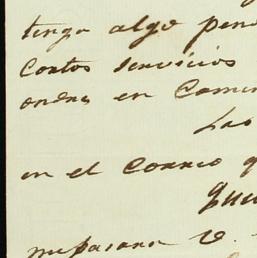 tengo algo pend
cortos servicios
ordenes en Comer
Las
en el correo q
que
me pasara V.